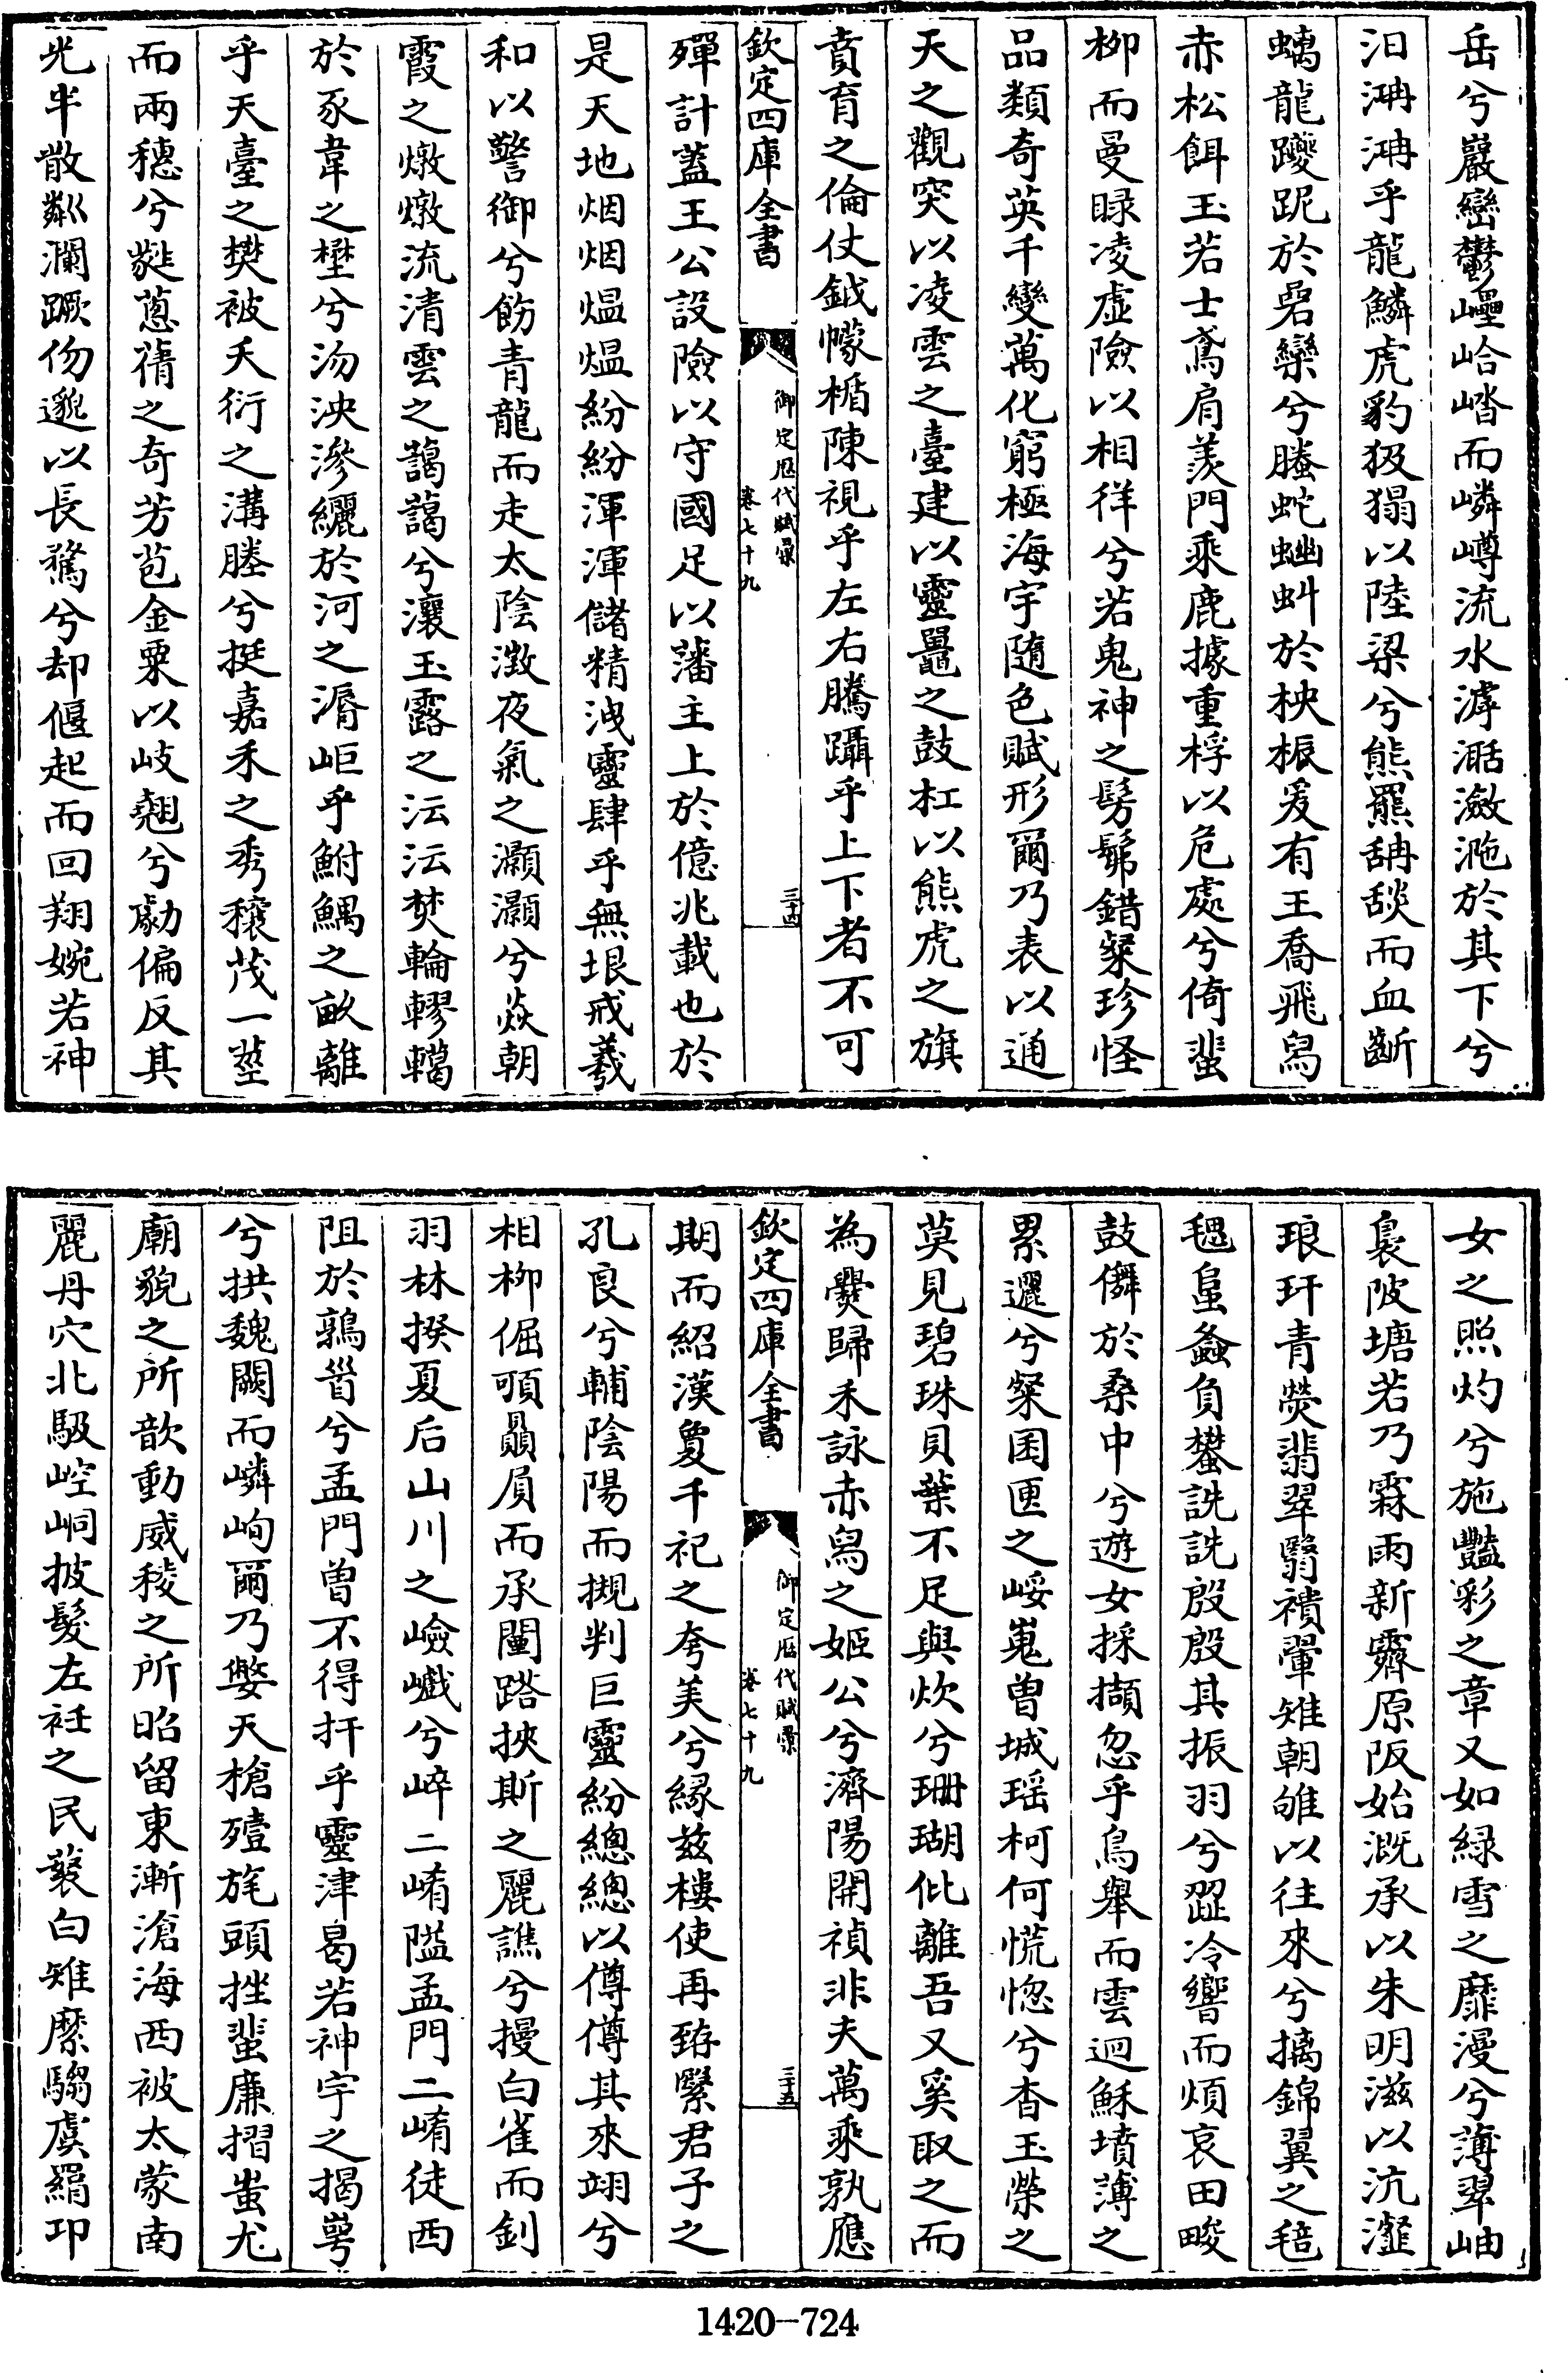 岳兮巖巒鬱壘峆㟳而嶙嶟流水滹湉瀲灔於其下兮
汨㴂㴂乎龍鱗虎豹猤猲以陸梁兮熊羆䑙舕而血斷
螭龍躨跜於磊欒兮騰蛇蚴虯於柍桭爰有王喬飛舄
赤松餌玉若士鳶肩羨門乘鹿據重桴以危處兮倚蜚
栁而曼睩凌虛險以相徉兮若鬼神之髣髴錯粲珍怪
品類奇英千變萬化窮極海宇隨色賦形爾乃表以通
天之觀突以凌雲之臺建以靈鼉之鼓杠以熊虎之旗
賁育之倫仗鉞幪楯陳視乎左右騰躡乎上下者不可
欽定四庫全書
御定歷代賦彙
卷七十九
三十四
殫計蓋王公設險以守國足以藩主上於億兆載也於
是天地烟烟熅熅紛紛渾渾儲精洩靈肆乎無垠戒羲
和以警御兮飭青龍而走太陰澂夜氣之灝灝兮焱朝
霞之燉燉流清雲之藹藹兮瀼玉露之沄沄焚輪轇轕
於豕韋之壄兮沕泱滲纚於河之漘岠乎鮒鰅之畝離
乎天臺之樊被天衍之溝塍兮挺嘉禾之秀穰茂一莖
而兩穗兮蕤蔥蒨之奇芳苞金粟以岐翹兮勮偏反其
光半散粼瀾蹶伆邈以長騖兮却偃起而回翔婉若神
女之照灼兮施豔彩之章又如緑雪之靡漫兮薄翠岫
裊陂塘若乃霖雨新霽原阪始溉承以朱明滋以沆瀣
琅玕青熒翡翠翳襛翬雉朝雊以往來兮摛錦翼之毰
毸蜑螽負蠜詵詵殷殷其振羽兮澀冷響而煩哀田畯
鼓儛於桑中兮遊女採擷忽乎鳥舉而雲迴穌墳薄之
累邐兮粲囷匭之崣嵬曾城瑶柯何慌惚兮杳玉榮之
莫見碧珠貝葉不足與炊兮珊瑚仳離吾又奚取之而
為爨歸禾詠赤舄之姬公兮濟陽開禎非夫萬乘孰應
欽定四庫全書
御定歷代賦彙
卷七十九
三十五
期而紹漢敻千祀之夸美兮緣兹樓使再臻繄君子之
孔良兮輔陰陽而摫判巨靈紛總總以僔僔其來翊兮
相栁倔㕟贔屓而承闉踏挾斯之麗譙兮擾白雀而釗
羽林揆夏后山川之嶮巇兮崪二崤隘孟門二崤徒西
阻於鶉首兮孟門曾不得扞乎靈津曷若神宇之揭㟧
兮拱魏闕而嶙峋爾乃嫳天槍殪旄頭挫蜚廉摺蚩尤
廟貌之所歆動威稜之所昭留東漸滄海西被太蒙南
麗丹穴北馺崆峒披髮左衽之民襲白雉縻騶虞羂卭
1420-724